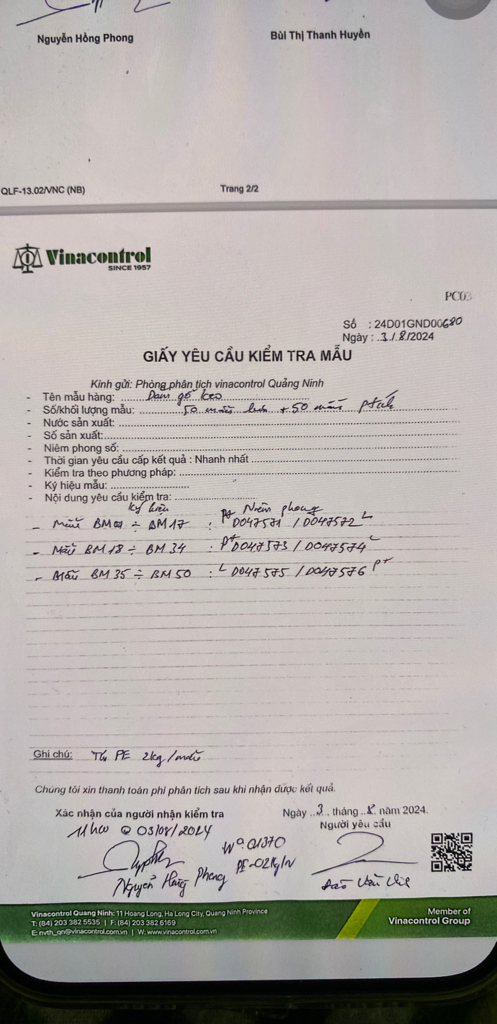 Nguyễn Hồng Phong
Bùi Thị Thanh Huyền
QLF-13.02/VNC (NB)
Trang 2/2
Vinacontrol
SINCE 1957
PC03
Số : 24D01GND00680
Ngày : 3/8/2024
GIẤY YÊU CẦU KIỂM TRA MẪU
Kính gửi: Phòng phân tích vinacontrol Quảng Ninh
- Tên mẫu hàng: Dăm gỗ keo
- Số/khối lượng mẫu: 50 mẫu lưu + 50 mẫu ptích
- Nước sản xuất:
- Số sản xuất:
- Niêm phong số:
- Thời gian yêu cầu cấp kết quả : Nhanh nhất
- Kiểm tra theo phương pháp:
- Ký hiệu mẫu:
- Nội dung yêu cầu kiểm tra:
Ký hiệu Niêm phong
- Mẫu BM01 ÷ BM17 : Pt D047571 / D047572 L
- Mẫu BM18 ÷ BM34 : Pt D047573 / D047574 L
- Mẫu BM35 ÷ BM50 : L D047575 / D047576 Pt
Ghi chú: PE 2kg/mẫu
Chúng tôi xin thanh toán phí phân tích sau khi nhận được kết quả.
Xác nhận của người nhận kiểm tra
Ngày 3 tháng 8 năm 2024.
Người yêu cầu
03/08/2024
Nº 01370
Nguyễn Hồng Phong
Vinacontrol Quang Ninh: 11 Hoang Long, Ha Long City, Quang Ninh Province
T: (84) 203 382 5535 | F: (84) 203 382 6169
E: nvth_qn@vinacontrol.com.vn | W: www.vinacontrol.com.vn
Member of
Vinacontrol Group